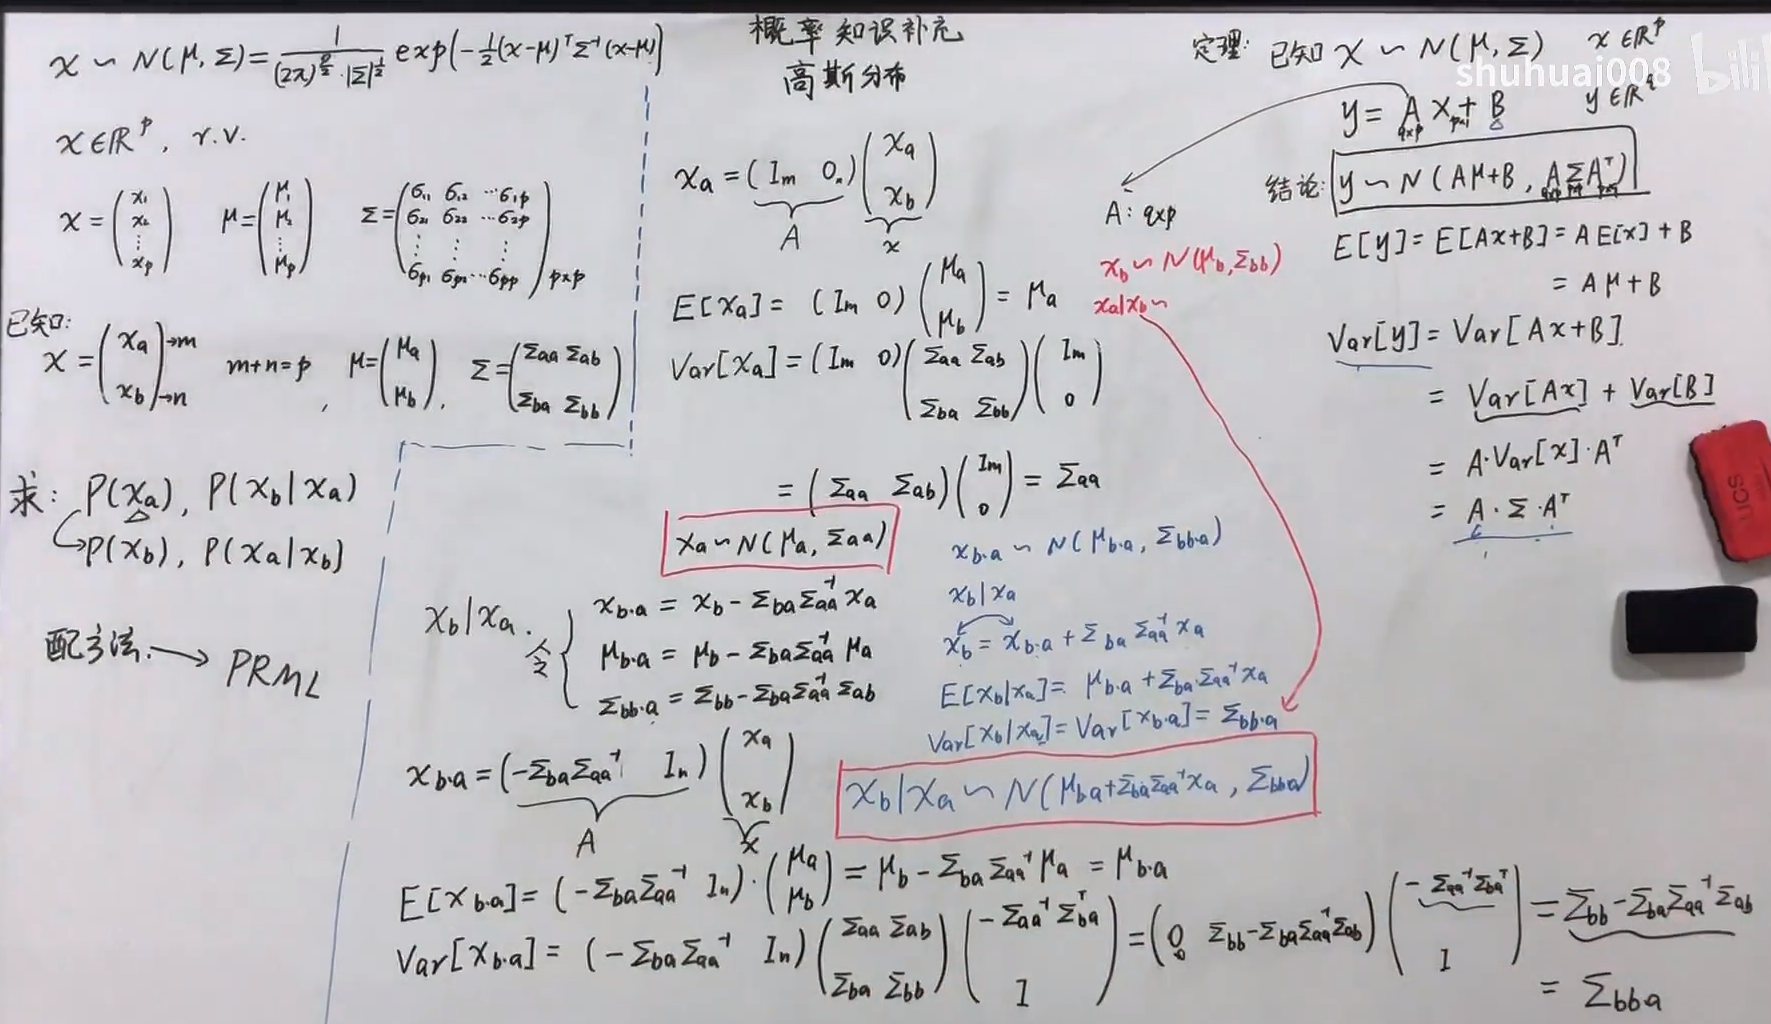 概率知识补充
高斯分布
x ~ N(μ, Σ) = 1/((2π)^{p/2}·|Σ|^{1/2}) exp(-1/2(x-μ)ᵀΣ⁻¹(x-μ))
x∈ℝᵖ, r.v.
x = (x₁ x₂ ⋮ x_p) μ = (μ₁ μ₂ ⋮ μ_p) Σ = (σ₁₁ σ₁₂ ⋯ σ₁p
σ₂₁ σ₂₂ ⋯ σ₂p
⋮ ⋮ ⋮
σp₁ σp₂ ⋯ σpp) p×p
已知:
x = (xa →m
xb →n) m+n=p, μ = (μa μb), Σ = (Σaa Σab
Σba Σbb)
求: P(xa), P(xb|xa)
P(xb), P(xa|xb)
配方法. → PRML
xa = (Im 0n)(xa xb)
A x
E[xa] = (Im 0)(μa μb) = μa
Var[xa] = (Im 0)(Σaa Σab
Σba Σbb)(Im
0)
= (Σaa Σab)(Im 0) = Σaa
xa ~ N(μa, Σaa)
xb|xa. 令 { xb·a = xb - ΣbaΣaa⁻¹xa
μb·a = μb - ΣbaΣaa⁻¹μa
Σbb·a = Σbb - ΣbaΣaa⁻¹Σab
xb·a = (-ΣbaΣaa⁻¹ In)(xa xb)
A x
E[xb·a] = (-ΣbaΣaa⁻¹ In)·(μa μb) = μb - ΣbaΣaa⁻¹μa = μb·a
Var[xb·a] = (-ΣbaΣaa⁻¹ In)(Σaa Σab
Σba Σbb)(-Σaa⁻¹Σbaᵀ
I) = (0 Σbb-ΣbaΣaa⁻¹Σab)(-Σaa⁻¹Σbaᵀ
I) = Σbb-ΣbaΣaa⁻¹Σab
= Σbba
xb·a ~ N(μb·a, Σbb·a)
xb|xa
xb = xb·a + ΣbaΣaa⁻¹xa
E[xb|xa] = μb·a + Σba·Σaa⁻¹xa
Var[xb|xa] = Var[xb·a] = Σbb·a
xb|xa ~ N(μba+ΣbaΣaa⁻¹xa, Σbba)
A: q×p
xb ~ N(μb, Σbb)
xa|xb ~
定理: 已知 x ~ N(μ, Σ) x∈ℝᵖ
shuhuai008 bili
y = A x + B y∈ℝ^q
q×p p×1
结论: y ~ N(Aμ+B, AΣAᵀ)
q×p p×p p×q
E[y] = E[Ax+B] = AE[x]+B
= Aμ+B
Var[y] = Var[Ax+B]
= Var[Ax] + Var[B]
= A·Var[x]·Aᵀ
= A·Σ·Aᵀ
UCS